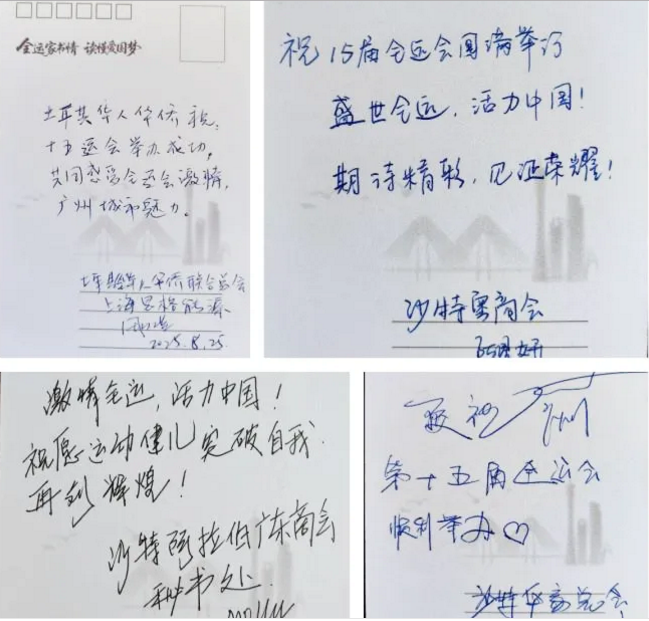 全运家书情 读懂爱国梦
土耳其华人华侨祝:
十五运会举办成功,
共同感受全运会激情,
广州城市魅力。
土耳其华人华侨联合总会
上海思格能源
2025.8.25
祝15届全运会圆满举行
盛世全运,活力中国!
期待精彩,见证荣耀!
沙特粤商会
激情全运,活力中国!
祝愿运动健儿突破自我.
再创辉煌!
沙特阿拉伯广东商会
秘书处.
祝广州
第十五届全运会
顺利举办♡
沙特华商总会